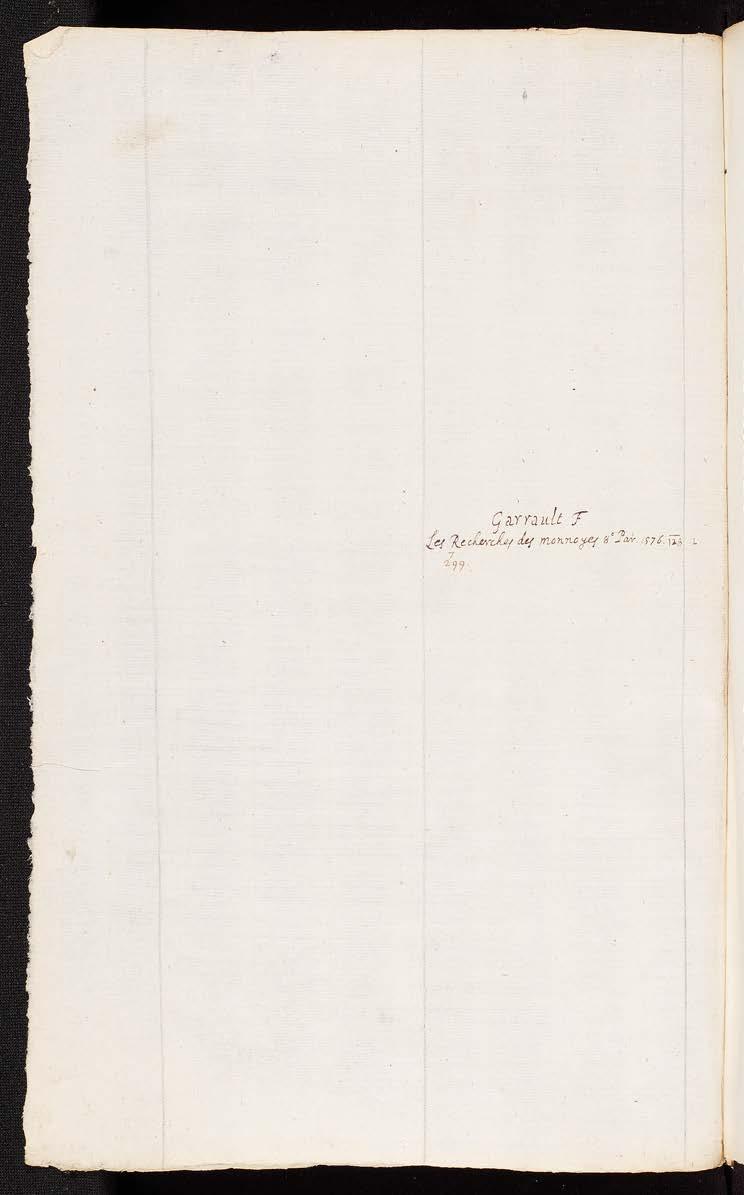 Garrault F
Les Recherches des monnoyes 8° Par. 1576. 123 2
7
299.